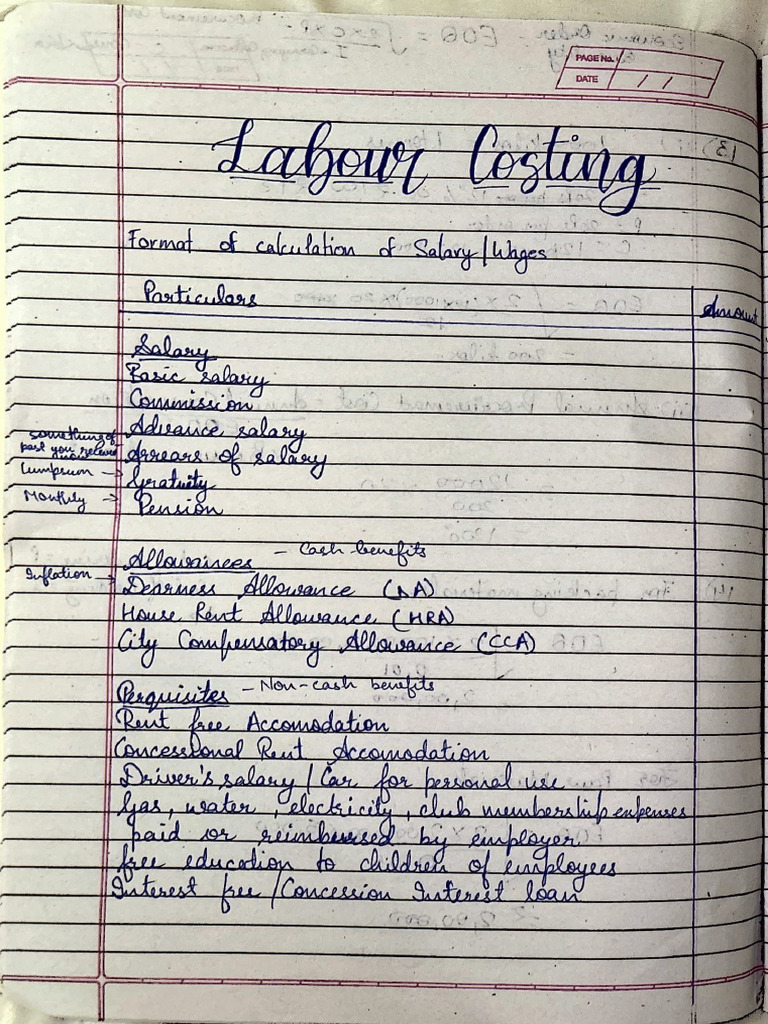 PAGE No.
DATE / /
Labour Costing
Format of calculation of Salary/Wages
Particulars
Amount
Salary
Basic salary
Commission
Advance salary
something of past you receive now
Arrears of salary
Lumpsum → Gratuity
Monthly → Pension
Allowances - Cash benefits
Inflation → Dearness Allowance (DA)
House Rent Allowance (HRA)
City Compensatory Allowance (CCA)
Perquisites - Non-cash benefits
Rent free Accomodation
Concessional Rent Accomodation
Driver's salary / Car for personal use
Gas, water, electricity, club membership expenses
paid or reimbursed by employer
free education to children of employees
Interest free / Concession Interest loan